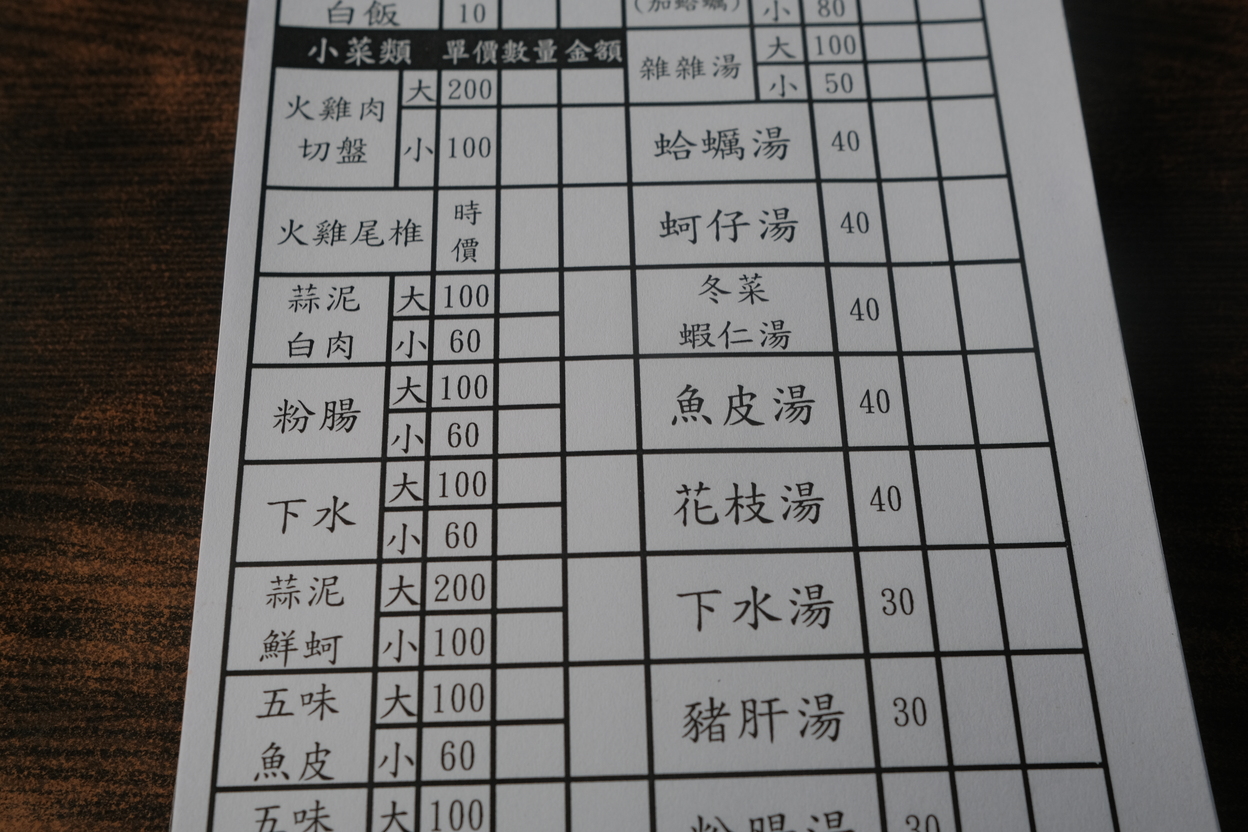 白飯 10
小菜類 單價 數量 金額
火雞肉 大 200
切盤 小 100
火雞尾椎 時
價
蒜泥 大 100
白肉 小 60
粉腸 大 100
小 60
下水 大 100
小 60
蒜泥 大 200
鮮蚵 小 100
五味 大 100
魚皮 小 60
五味 大 100
(加蛤蠣) 小 80
雜雜湯 大 100
小 50
蛤蠣湯 40
蚵仔湯 40
冬菜
蝦仁湯 40
魚皮湯 40
花枝湯 40
下水湯 30
豬肝湯 30
粉腸湯 30